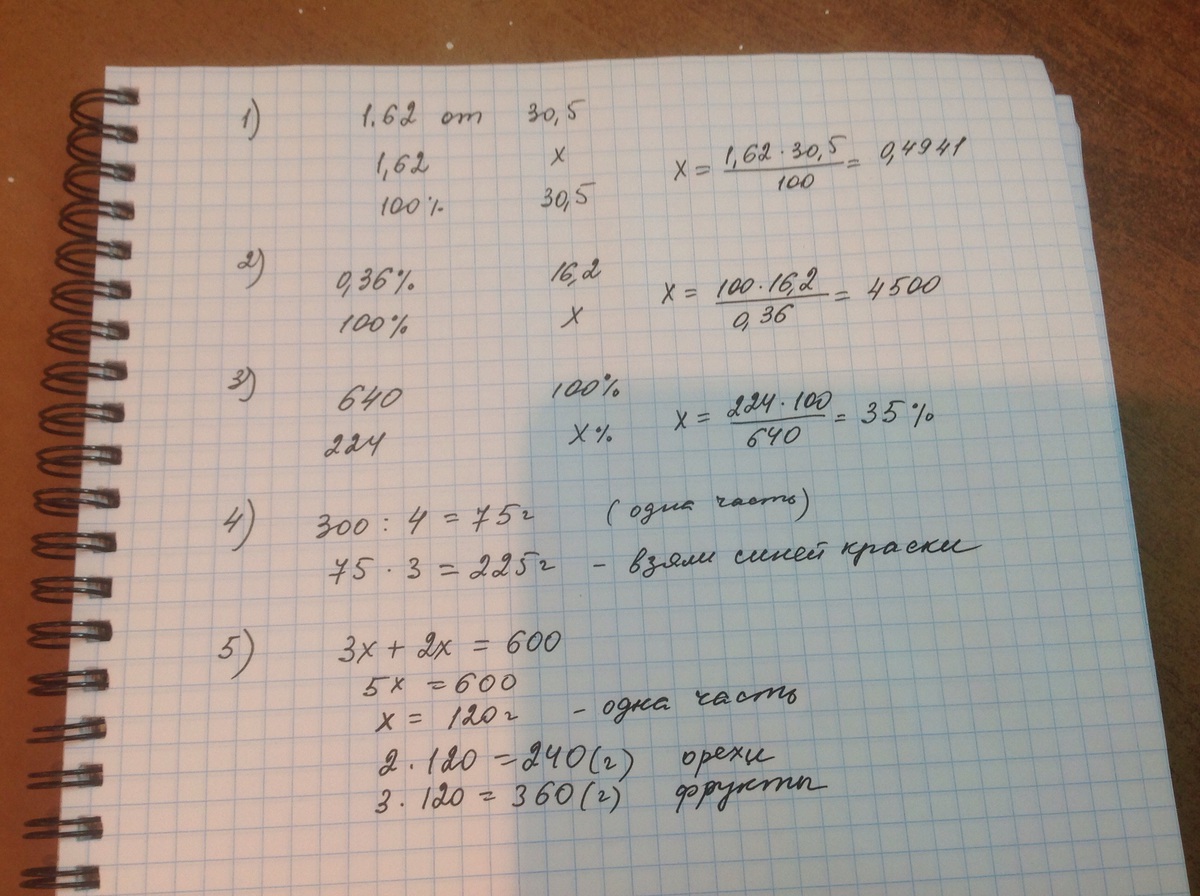 1) 1.62 от 30,5
1,62 x x = 1,62 · 30,5 / 100 = 0,4941
100% 30,5
2) 0,36% 16,2 x = 100 · 16,2 / 0,36 = 4500
100% x
3) 640 100% x = 224 · 100 / 640 = 35%
224 x%
4) 300 : 4 = 75г (одна часть)
75 · 3 = 225г - взяли синей краски
5) 3x + 2x = 600
5x = 600
x = 120г - одна часть
2 · 120 = 240(г) орехи
3 · 120 = 360(г) фрукты